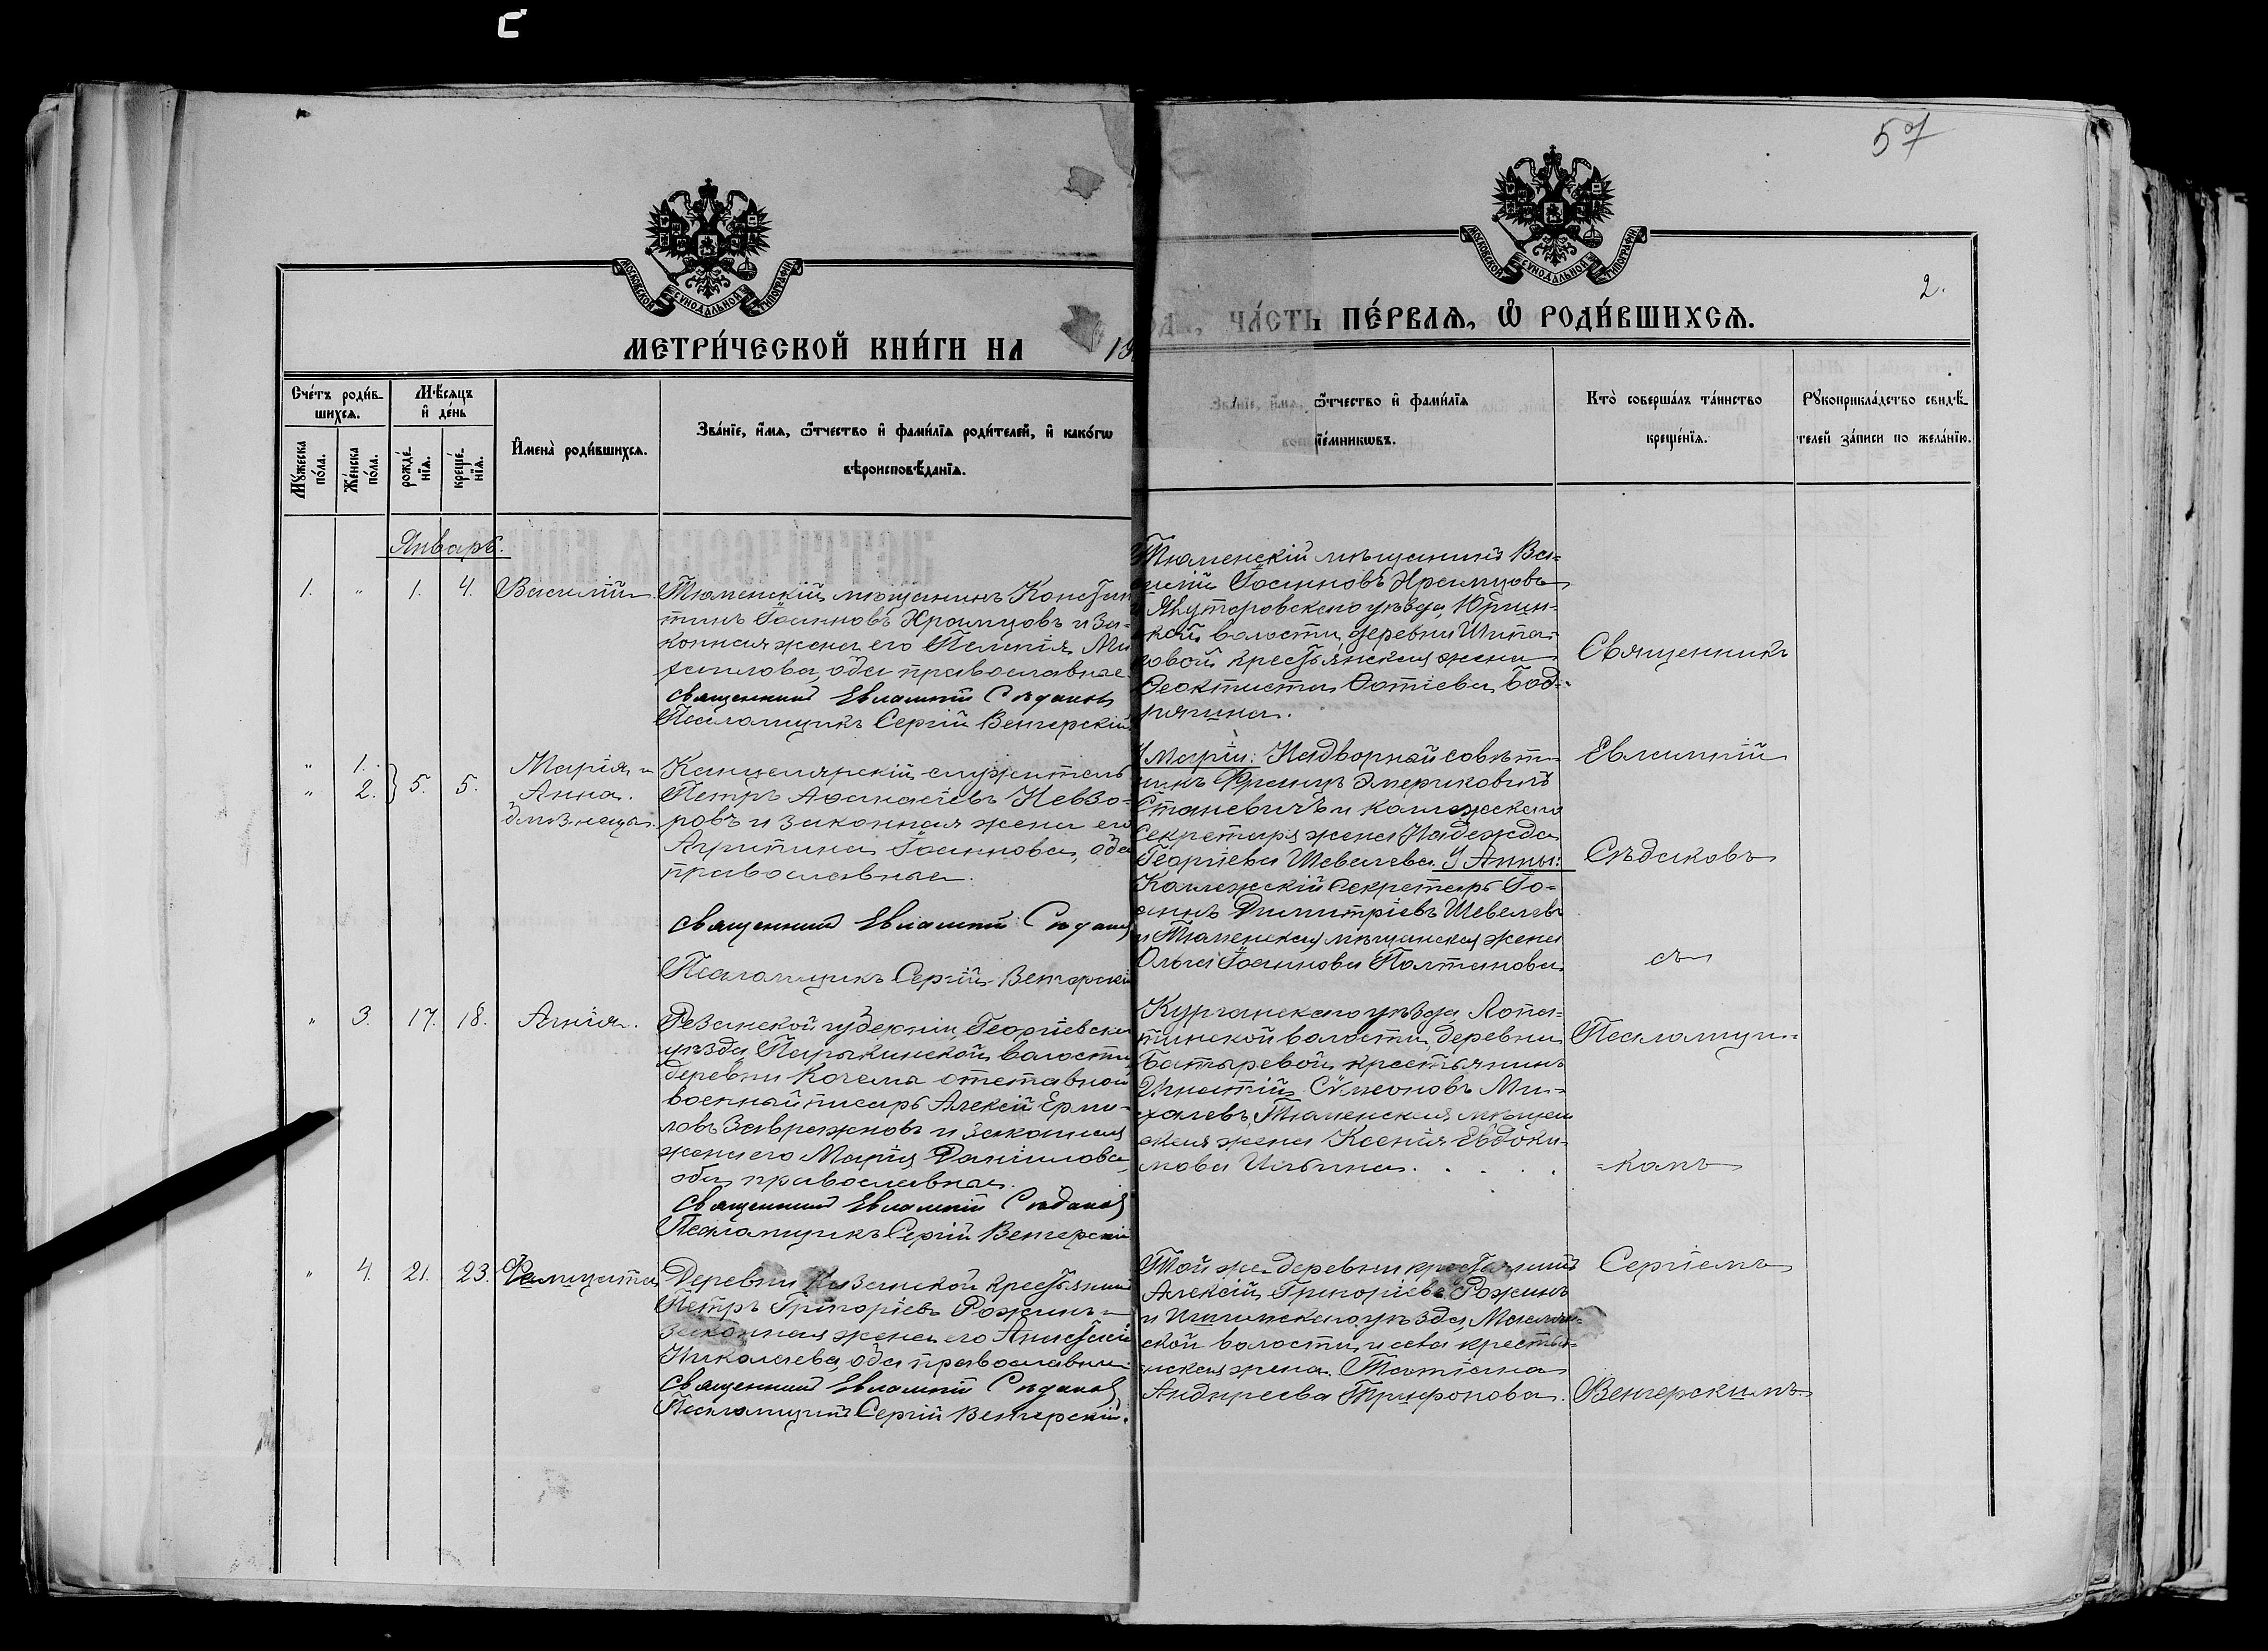 57
МОСКОВСКОЙ СѴНОДАЛЬНОЙ ТИПОГРАФІИ
МОСКОВСКОЙ СѴНОДАЛЬНОЙ ТИПОГРАФІИ
2.
МЕТРИ́ЧЕСКОЙ КНИ́ГИ НА 19
ЧА́СТЬ ПЕ́РВАѦ, Ѿ РОДИ́ВШИХСѦ.
Сче́тъ роди́в-
шихсѧ.
Мꙋ́жеска по́ла.
Же́нска по́ла.
Мѣ́сѧцъ
и҆ де́нь
рожде́-нїѧ.
креще́-нїѧ.
И҆мена̀ роди́вшихсѧ.
Зва́нїе, и҆́мѧ, ѻ҆́тчество и҆ фами́лїѧ роди́телей, и҆ како́гѡ
вѣроисповѣ́данїѧ.
Ѻ҆́тчество и҆ фами́лїѧ
пїе́мникѡвъ.
Кто̀ соверша́лъ та́инство
креще́нїѧ.
Рꙋкоприкла́дство свидѣ́-
телей за́писи по жела́нїю.
Январь.
1. " 1. 4. Василій.
Тюменскій мѣщанинъ Констан
тинъ Іоанновъ Храмцовъ и за-
конная жена его Пелагія Ми
хаилова, оба православные.
Священникъ Евлампій Сѣдаковъ
Псаломщикъ Сергій Венгерскій
Тюменскій мѣщанинъ Ва-
силій Іоанновъ Храмцовъ
и Ялуторовскаго уѣзда, Юргин-
ской волости, деревни Шипа-
ковой крестьянская жена
Феоктиста Фотіева
Священникъ
" 1.
" 2. } 5. 5.
Марія и
Анна.
близнецы.
Канцелярскій служитель
Петръ Афанасіевъ Невзо-
ровъ и законная жена его
Агрипина Іоаннова, оба
православные.
Священникъ Евлампій Сѣдаковъ
Псаломщикъ Сергій Венгерскій
У Маріи: Надворный совѣт-
никъ Францъ Эмериковичъ
Станевичъ и коллежскаго
секретаря жена Надежда
Георгіева Шевелева. У Анны:
Коллежскій Секретарь Іо-
аннъ Димитріевъ Шевелевъ
и Тюменская мѣщанская жена
Ольга Іоаннова Полтанова
Евлампій
Сѣдаковъ
съ
" 3. 17. 18. Агнія.
Рязанской губерніи, Георгіевска
уѣзда, волости,
деревни отставной
военный писарь Алексій Ерми-
ловъ Завражновъ и законная
жена его Марія Даніилова,
оба православные.
Священникъ Евлампій Сѣдаковъ
Псаломщикъ Сергій Венгерскій
Курганскаго уѣзда, Лопа-
тинской волости, деревни
Батыревой крестьянинъ
Игнатій Сѵмеоновъ Ми-
халевъ, Тюменская мѣщан
ская жена Ксенія Евдоки-
мова Ильина.
Псаломщи-
-комъ
" 4. 21. 23.
Деревни Казанской крестьянинъ
Петръ Григоріевъ Рожинъ и
законная жена его Анастасія
Николаева, оба православные.
Священникъ Евлампій Сѣдаковъ
Псаломщикъ Сергій Венгерскій.
Той же деревни крестьянинъ
Алексій Григоріевъ Рожинъ
и Ишимскаго уѣзда,
ской волости, и села крестьян-
ская жена Татіана
Андреева Трифонова.
Сергіемъ
Венгерскимъ